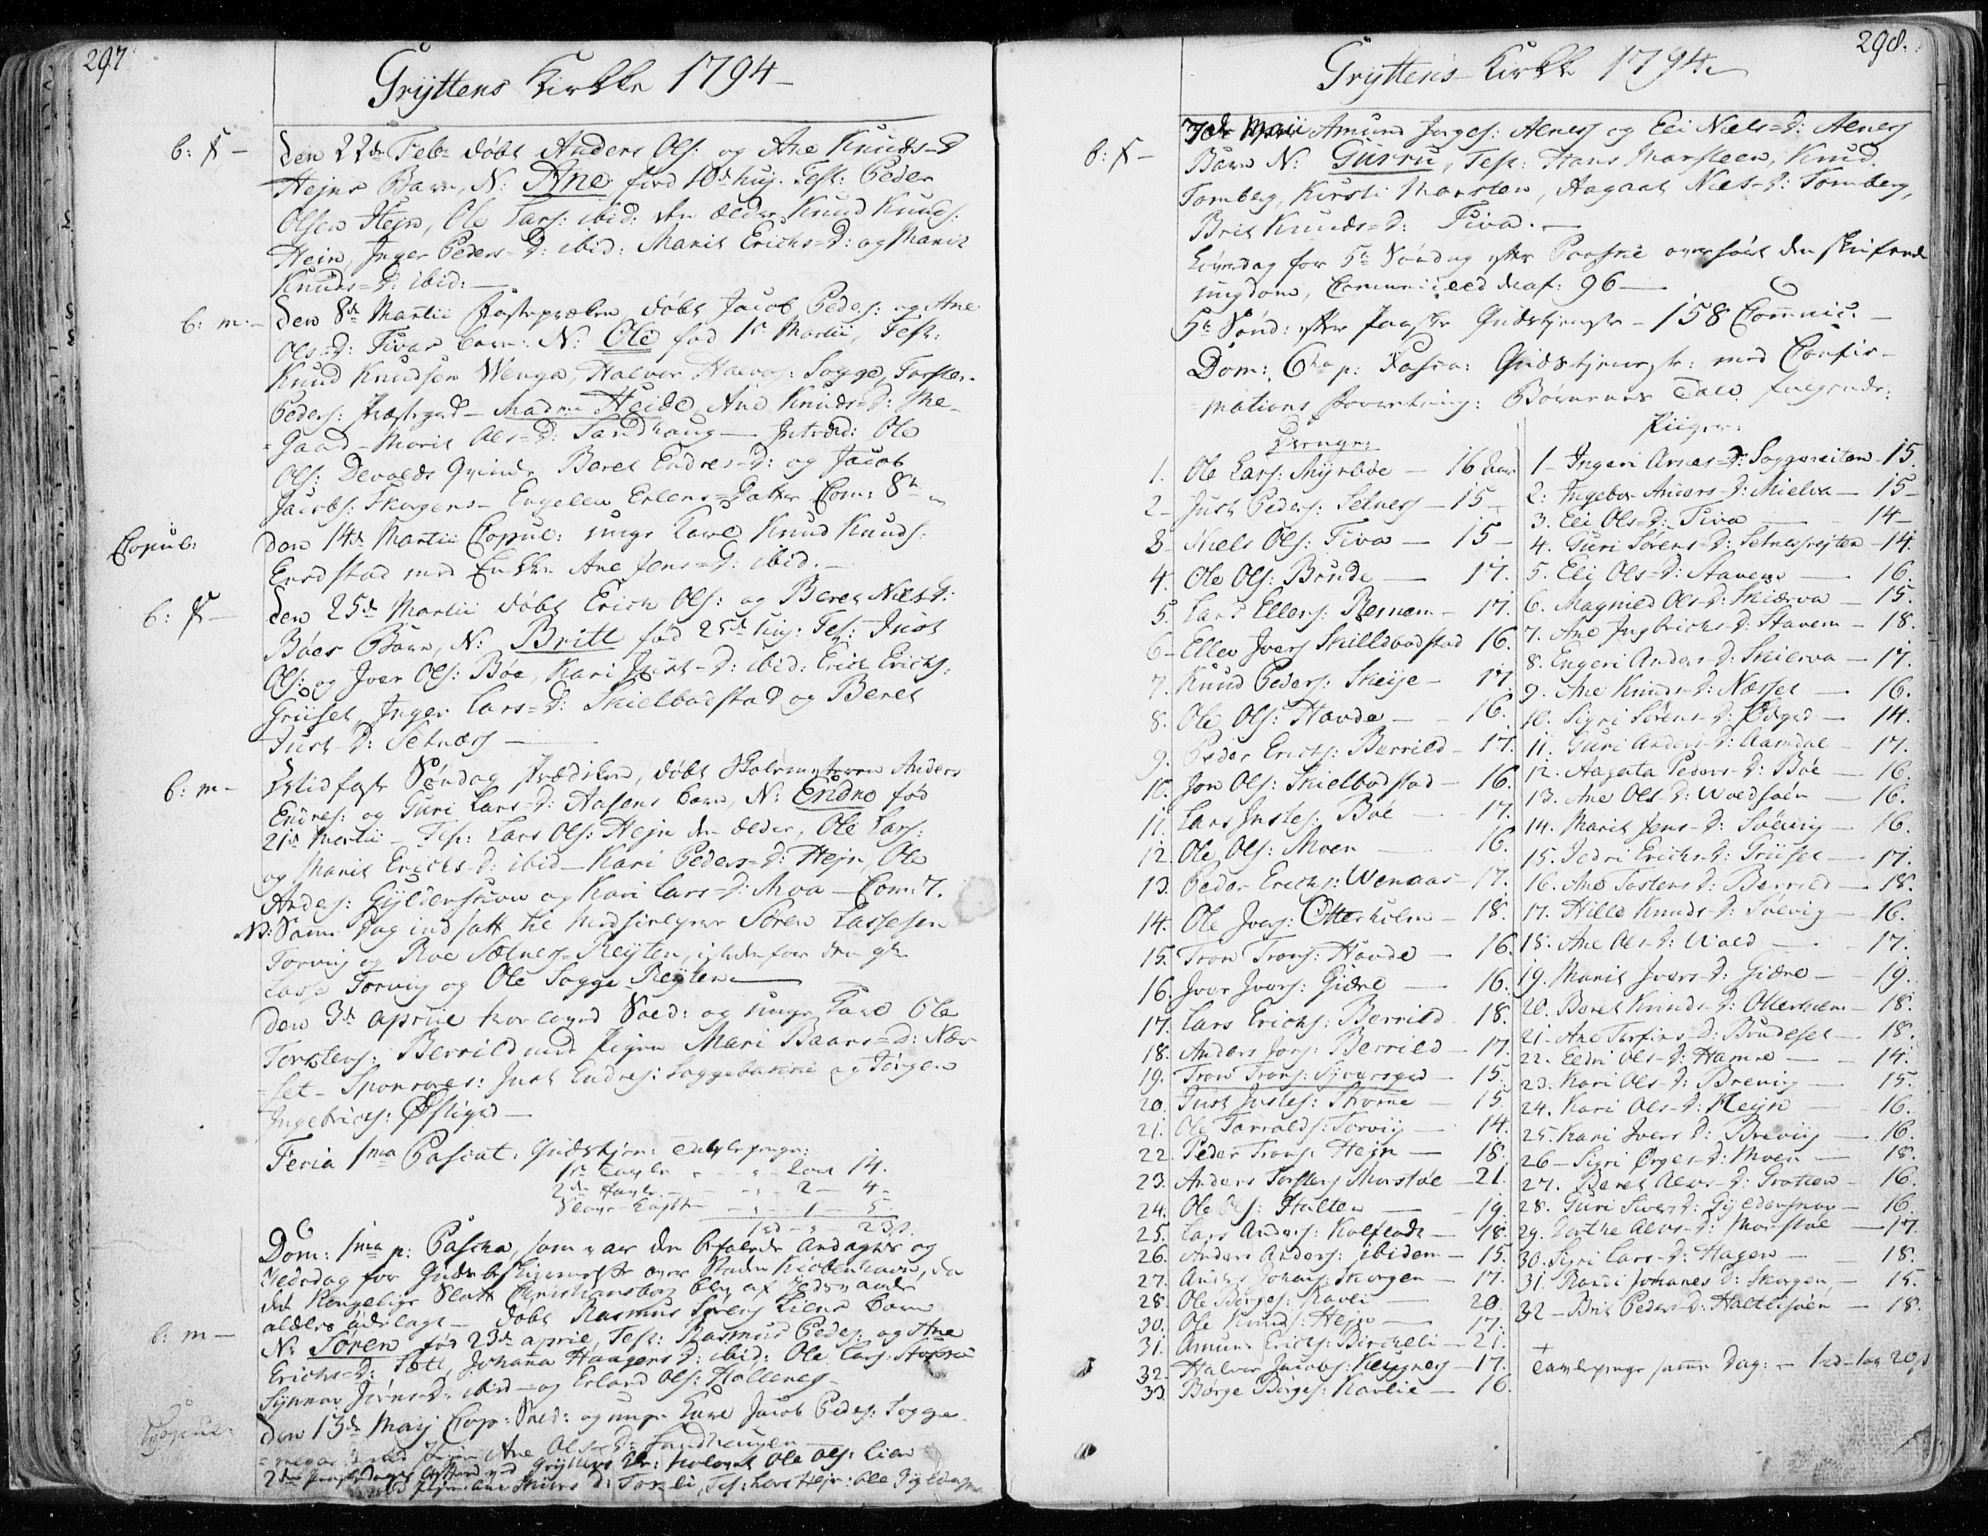 297.
Gryttens Kirkke 1794
b: K — den 22de Feb: døbt Anders Ols: og Ane Knuds-D
Hejns Barn, N: Ane fød 10de huj. Test: Peder
Olsen Hejn, Ole Lars: ibid: den ældre Knud Knuds:
Hein, Inger Peders-D: ibid: Marit Erichs-D: og Marit
Knuds-D: ibid:
b: m: — den 8de Martii døbt Jacob Peders: og Ane
Ols-D: Tivas barn: N: Ole fød 1ste Martii, Test:
Knud Knudsen Wenga, Halvor Sogge, Torsten
Peders: Madme Heide, Ane Knuds-D: 
gaard — Marit Ols-D: Sandhaug — Introd: Ole
Ols: Devolds Beret Endres-D: og Jacob
Jacobs: Skorgens — Engelen Erlens-Datter Com: 8
Copul: den 14de Martii Copul: unge Karl Knud Knuds:
med Enkke Ane Jens-D: ibid.
b: K — den 25de Martii døbt Erich Ols: og Beret Niels-D:
Böes Barn, N: Britt fød 25de huj: Test: Just
Ols: og Jver Ols: Böe, Kari Just-D: ibid: Erich Erichs:
Grüset, Inger Lars-D: Skielbodstad og Beret
Just-D: Setnæs
b: m — Midfaste Söndag Prædiken, døbt Skolemesteren Anders
Endres: og Guri Lars-D: Aasens barn, N: Endre fød
21de Martii — Test: Lars Ols: Hejn den ældre, Ole Lars:
og Marit Erichs-D: ibid — Kari Peders-D: Hejn, Ole
Anders: Gyldenskow og Kari Lars-D: Moa — Com: 7.
NB: Samme Dag indsatt til Medhielpere Sören Lassesen
Torvig og Roe Setnes-Reyten, istedenfor den gl:
Lasse Torvig og Ole Sogge Reyten
den 3de Aprill trolovet Sold: og unge Karl Ole
Torstens: Berrild med Pigen Mari Baars-D: Næs-
set — Sponsores: Just Endres: Soggebakke og Jörgen
Ingebrigts:
Feria 1ma Pascat: Gudstjen: Tavlepenge:
1ste Tavle 2 ort 14.
2den Tavle 2 — 4
1 — 5
1rd 23s.
Dom: 1ma p: Pascha, som var den befalede Andagts og
Bededag for over Staden Kiöbenhavn, da
det Kongelige Slott Christiansborg blev af Ildsvaade
aldeles ödelagt —
b: m — døbt Rasmus Sörens: Liens barn
N: Sören fød 23de aprill, Test: Rasmus Peders: og Ane
Erichs-D: Johana Haagens-D: ibid: Ole Lars:
Synnøv Jörns-D: ibid — og Erland Ols:
Copul: den 13de Maij Cop: Sold: og unge Karl Jacob Peders: Sogge-
med Pigen Ane Ols-D: Sandhaugen
Ole Ols: Lien
D: Test: Lars Hejn: Ole
298.
Gryttens Kirkke 1794.
b: K — Maii Amund Jørges: Alnes og Eli Niels-D: Alnes
Barn N: Gurru, Test: Hans Marsteen, Knud
Tomberg, Kirsti Marsten, Aagaat Niels-D: Tomberg,
Brit Knuds-D: Tiva.
Löverdag for 5te Söndag efter Paaske overhört den skriftende
ungdom, Communiceed deraf: 96
5te Sönd: efter Paaske Gudstjeneste — 158 Commic:
Dom: 6ta p: Pascha: Gudstjeneste: med Confir-
mations forretning: Börnenes Tale følgende:
Drenge:
1. Ole Lars: Myrbóe — 16 Aar
2 — Just Peders: Setnes — 15
3 — Niels Ols: Tiva — 15
4. Ole Ols: Brude — 17.
5. Lars Ellers: Remem — 17.
6 — Ellev Jvers Skielbodstad 16.
7. Knud Peders: Skeije — 17
8. Ole Ols: Hovde — 16.
9. Peder Erichs: Berrild — 17.
10. Jon Ols: Skielbodstad — 16.
11. Lars Justes: Böe — 17.
12. Ole Ols: Moen — 16.
13. Peder Erichs: Wenaas — 17.
14. Ole Jvers: Otterholm — 18.
15. Tron Trons: Hovde — 16.
16. Jver Jvers: Gidre — 16.
17. Lars Erichs: Berrild 18.
18. Anders Jvers: Berrild — 17.
19. Tron Trons: Syversgrd — 15.
20. Just Justes: Strome — 15
21. Ole Torrolds: Torvig — 14.
22. Peder Trons: Hejn — 18.
23. Anders Torstens Morstöl — 21.
24. Ole Ols: Holten — 19
25. Lars Anders: Kolflaat — 18.
26. Anders Anders: ibidem — 15.
27. Anders Johans: Skorgen — 17.
28. Ole Börges: Kavli — 20.
30. Ole Knuds: Hejn — 17.
31. Amund Erichs: Birckeli — 21.
32. Halvor Jacobs: — 17.
33. Börge Börges: Kavlie — 16.
Piiger:
1 — Ingeri Arnes-D: Soggereiten — 15.
2: Ingebor Anders-D: Mielva — 15
3. Eli Ols-D: Tiva — 14
4. Guri Sörens-D: Setnesrejten — 14.
5. Eli Ols-D: Stavem — 16.
6. Magnild Ols-D: Skierva — 15.
7. Ane Ingbrichs-D: Stavem — 18.
8. Engeri Anders-D: Skierva — 17.
9. Ane Knuds-D: Næsset — 16.
10. Sigri Sörens-D: Ödegrd — 14.
11. Guri Anders-D: Aamdal — 17.
12. Aagata Peders-D: Böe — 16.
13. Ane Ols-D: Woldsöen — 16.
14. Marit Jens-D: Sölvig — 16.
15. Jedri Erichs-D: Grüset — 17.
16. Ane Tostens D: Berrild — 18.
17. Hilled Knuds-D: Sölvig — 16.
18. Ane Ols-D: Wold — 17.
19. Marit Jvers-D: Gidre — 19.
20. Beret Knuds-D: Otterholm — 18.
21 — Ane Torfins-D: Brudeset — 18.
22. Eldri Ols-D: Hamre — 14.
23. Kari Ols-D: Brevig — 15.
24. Kari Ols-D: Hejn — 16.
25. Kari Jvers D: Brevig — 16.
26 — Sigri Örges-D: Moen — 18.
27. Beret Alvs-D: Grotten — 16.
28. Guri Sivers D: Gyldenskow — 16.
29. Dorthe Alvs-D: Morstöl — 17.
30. Sigri Lars-D: Hagen — 18.
31. Randi Johanes D: Skorgen — 15.
32 — Brit Peders-D: Holtesöen — 18.
Tavlepenge samme Dag: — 1rd — 1ort 20s